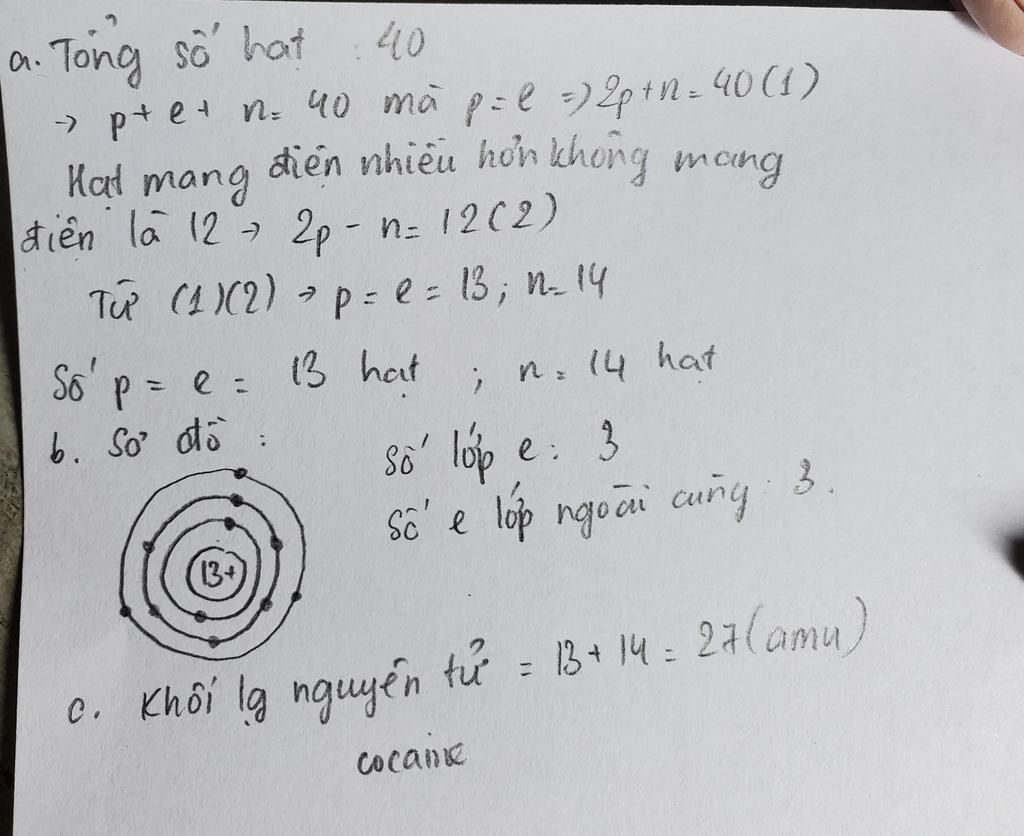 a. Tổng số hạt : 40
→ p + e + n = 40 mà p = e => 2p + n = 40 (1)
Hạt mang điện nhiều hơn không mang
điện là 12 → 2p - n = 12 (2)
Từ (1)(2) → p = e = 13; n = 14
Số p = e = 13 hạt ; n = 14 hạt
b. Sơ đồ :
số lớp e : 3
số e lớp ngoài cùng : 3.
13+
c. Khối lg nguyên tử = 13 + 14 = 27 (amu)
cocaine